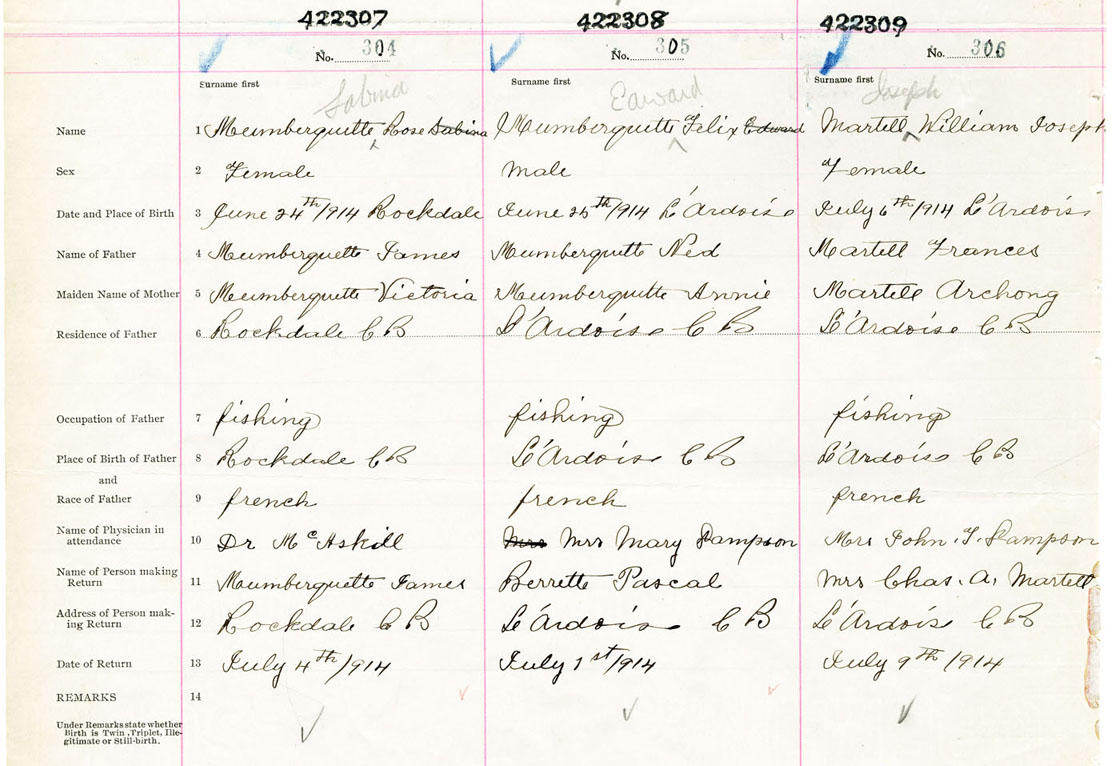 422307 422308 422309
No. 304 No. 305 No. 306
Surname first Surname first Surname first
Sabina Edward Joseph
Name 1 Mumberquette Rose Sabina Mumberquette Felix Edward Martell William Joseph
Sex 2 Female male Female
Date and Place of Birth 3 June 24th/1914 Rockdale June 25th/1914 L'Ardoise July 6th/1914 L'Ardoise
Name of Father 4 Mumberquette James Mumberquette Ned Martell Frances
Maiden Name of Mother 5 Mumberquette Victoria Mumberquette Annie Martell Archong
Residence of Father 6 Rockdale C B L'Ardoise C B L'Ardoise C B
Occupation of Father 7 fishing fishing fishing
Place of Birth of Father 8 Rockdale C B L'Ardoise C B L'Ardoise C B
and
Race of Father 9 french french french
Name of Physician in
attendance 10 Dr McAskill Mrs Mrs Mary Sampson Mrs John J. Sampson
Name of Person making
Return 11 Mumberquette James Berrette Pascal Mrs Chas. A. Martell
Address of Person mak-
ing Return 12 Rockdale C B L'Ardoise C B L'Ardoise C B
Date of Return 13 July 4th/1914 July 1st/1914 July 9th/1914
REMARKS 14
Under Remarks state whether
Birth is Twin, Triplet, Ille-
gitimate or Still-birth.